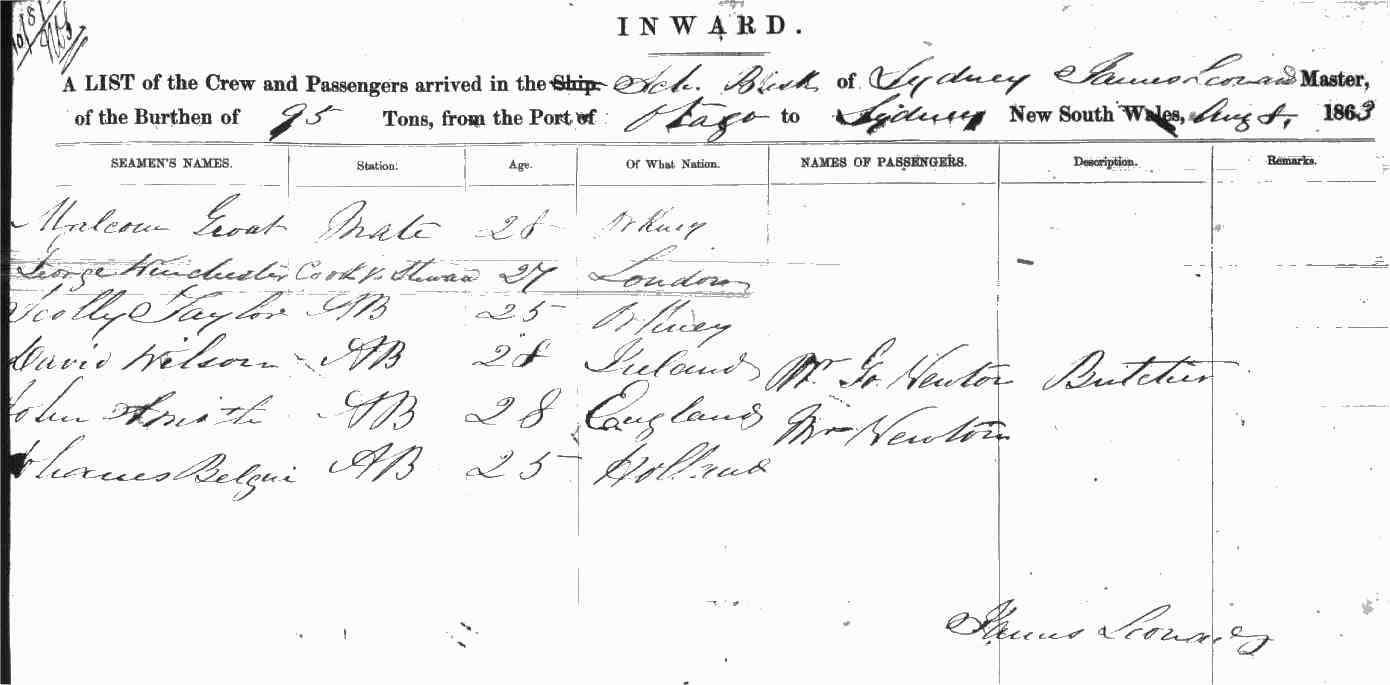 10/8/63
INWARD.
A LIST of the Crew and Passengers arrived in the Ship Sch. Brisk of Sydney James Leonard Master,
of the Burthen of 95 Tons, from the Port of Otago to Sydney New South Wales, Aug 8, 1863
SEAMEN'S NAMES. Station. Age. Of What Nation. NAMES OF PASSENGERS. Description. Remarks.
Malcom Groat Mate 28 Orkney
George Winchester Cook & Steward 27 London
Scolly Taylor AB 25 Orkney
David Wilson AB 28 Ireland Mr Go Newton Butcher
John AB 28 England Mrs Newton
AB 25 Holland
James Leonard